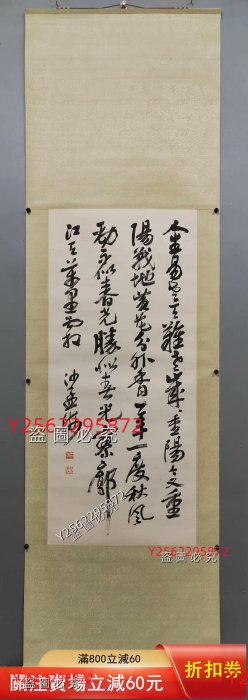 人生易老天難老歲々重陽今又重
陽戰地黄花分外香一年一度秋風
勁不似春光勝似春光寥廓
江天萬里霜 沙孟海
Y2562295872
盗圖必究
Y2562295872
盗圖必究
Y2562295872
盗圖必究
滿800立減60
關注賣場立減60元
折扣券